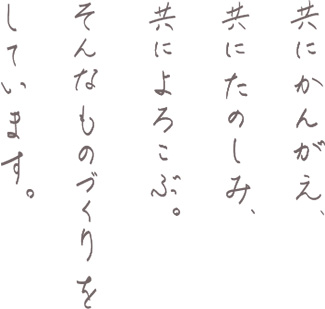 共にかんがえ、
共にたのしみ、
共によろこぶ。
そんなものづくりを
しています。